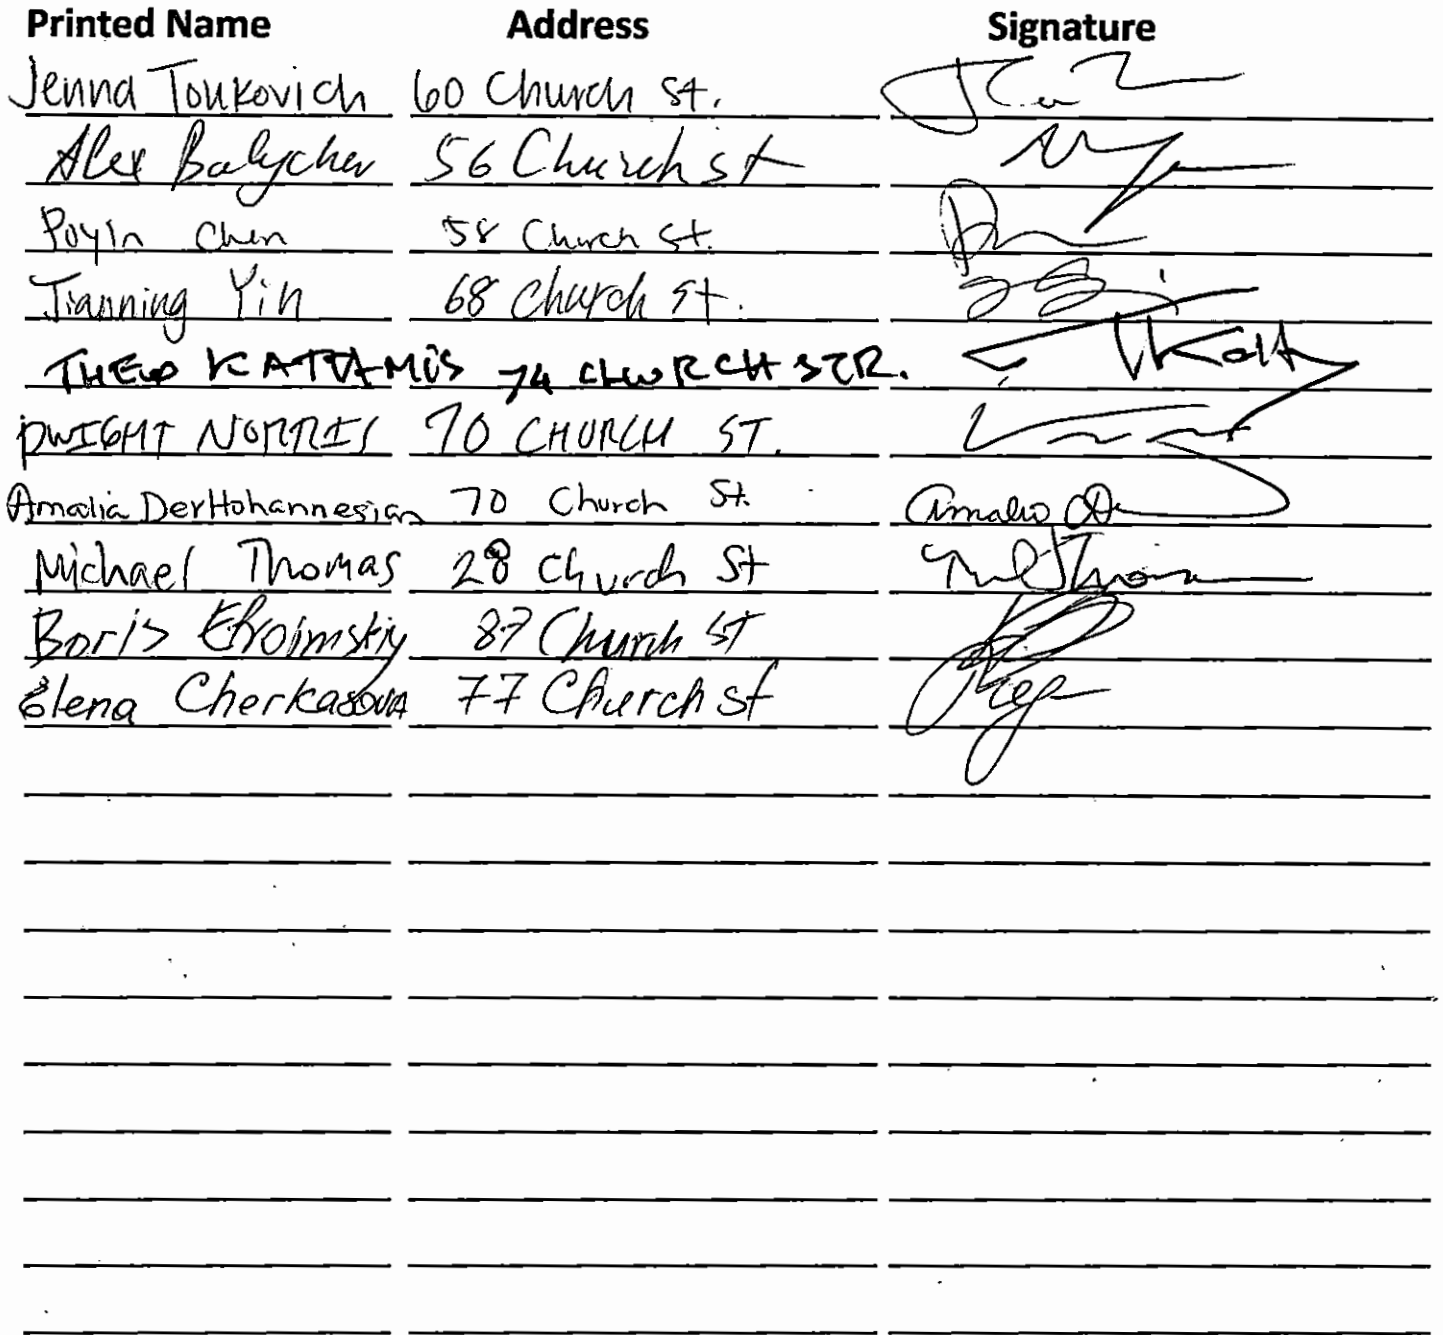 Printed Name Address Signature
Jenna Toukovich 60 Church St.
Alex Balychev 56 Church st
Poyin Chen 58 Church St.
Jianning Yin 68 Church St.
THEO KATTAMIS 74 CHURCH STR.
DWIGHT NORRIS 70 CHURCH ST.
Amalia DerHohannesian 70 Church St. Amalia
Michael Thomas 28 Church St
Boris Efroimskiy 87 Church ST
Elena Cherkasova 77 Church st